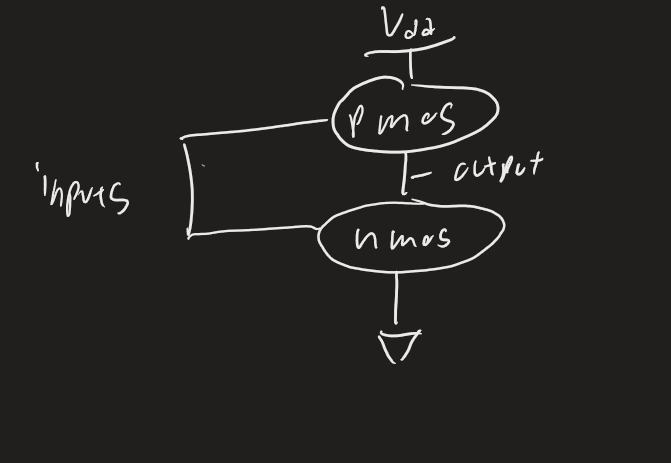 Vdd
pmos
output
inputs
nmos